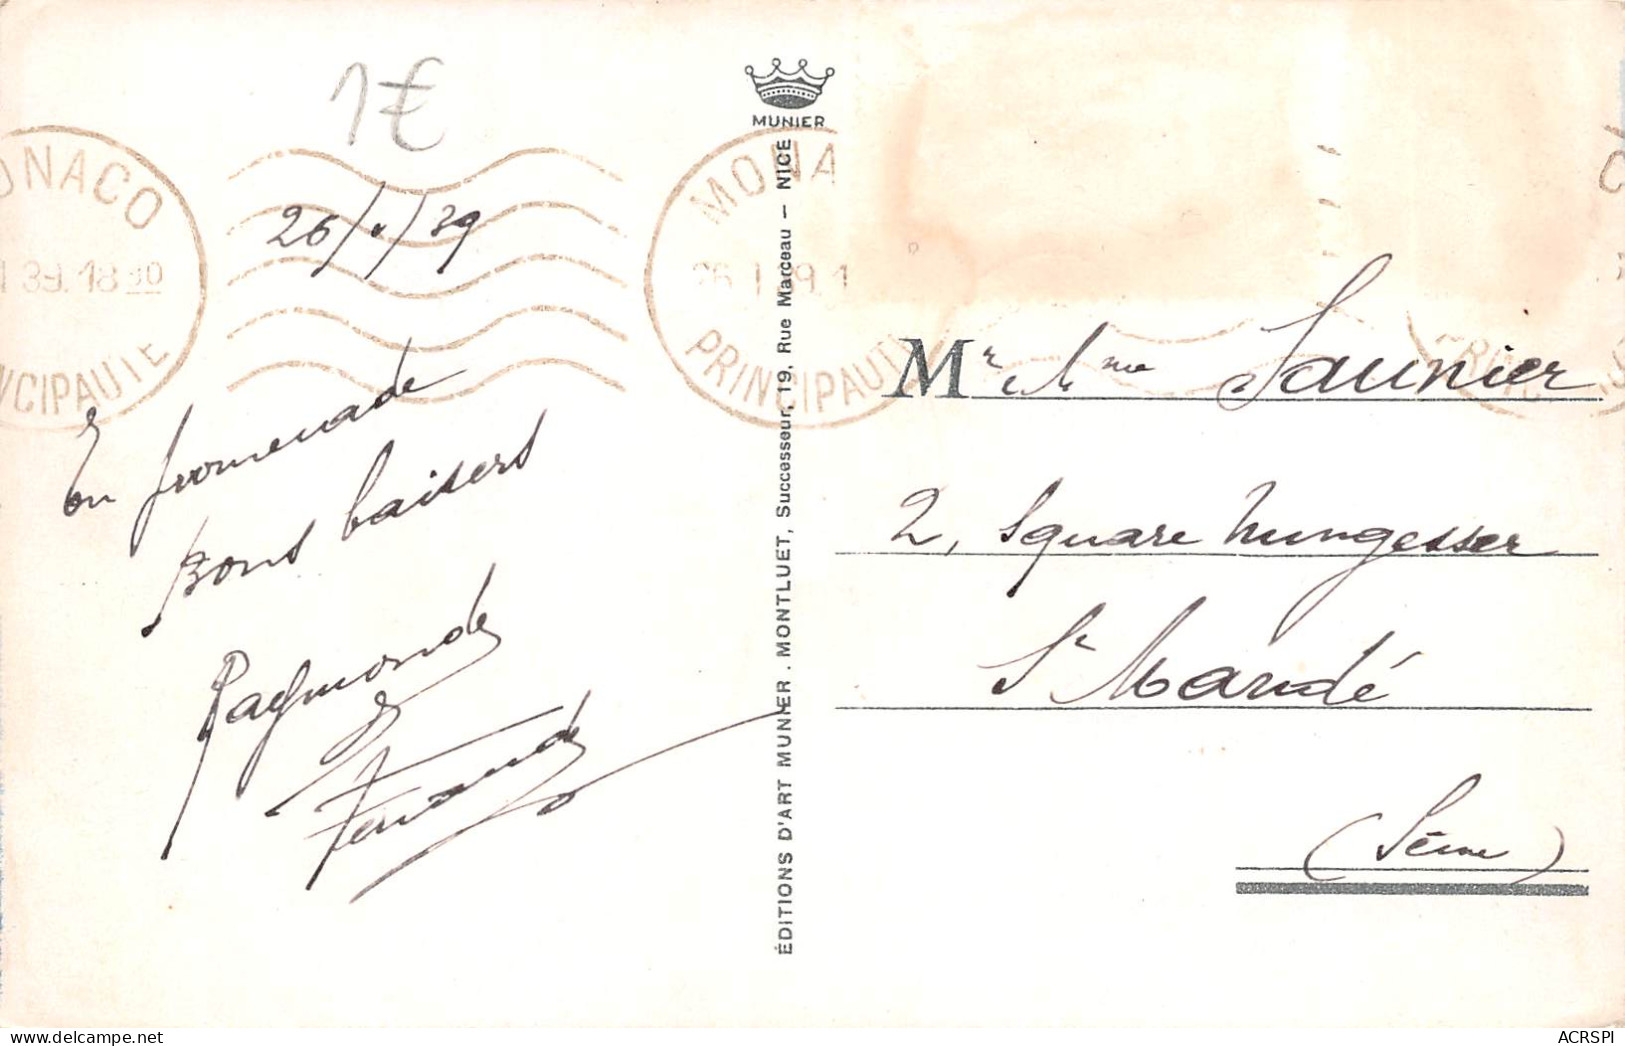 1€
MUNIER
ONACO
I 39. 18 30
NCIPAUTE
MONA
26 I 39. 1
PRINCIPAUTE
26/1/39
En promenade
Bons baisers
Raymonde
Fernande
ÉDITIONS D'ART MUNIER. MONTLUET, Successeur, 19, Rue Marceau – NICE
Mr & Mme Saunier
2, Square Nungesser
St Mandé
(Seine)
ACRSPI